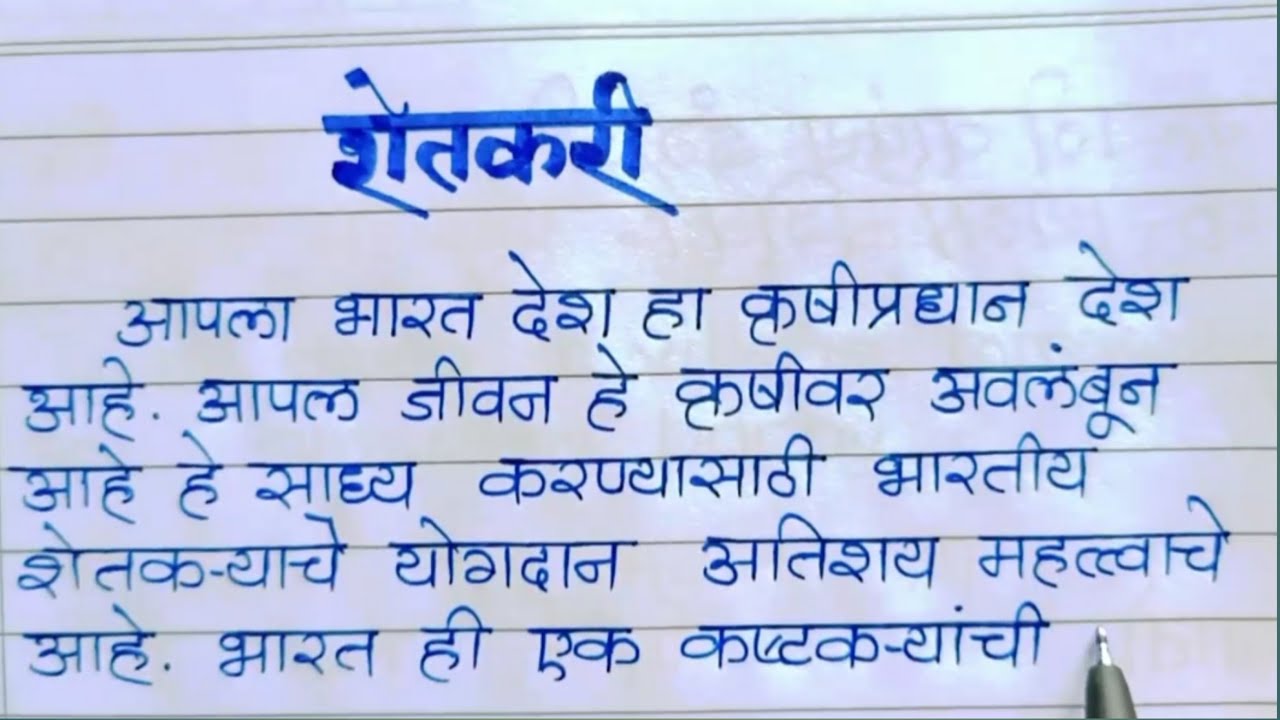 शेतकरी
आपला भारत देश हा कृषीप्रधान देश
आहे. आपल जीवन हे कृषीवर अवलंबून
आहे हे साध्य करण्यासाठी भारतीय
शेतकऱ्याचे योगदान अतिशय महत्त्वाचे
आहे. भारत ही एक कष्टकऱ्यांची